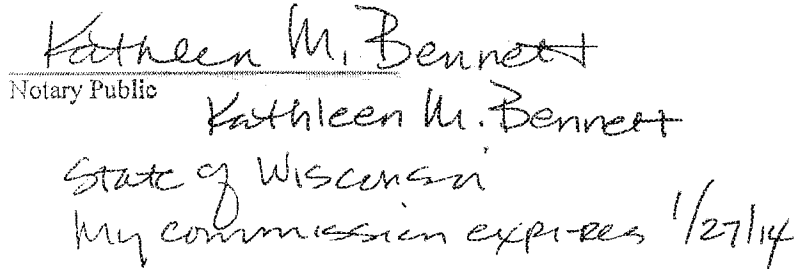 Kathleen M. Bennett
Notary Public
Kathleen M. Bennett
State of Wisconsin
My commission expires 1/27/14